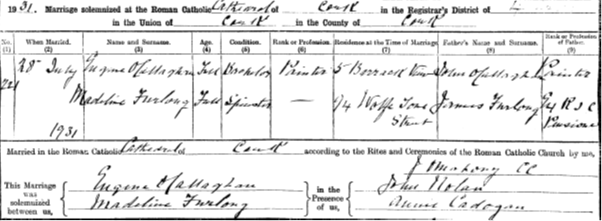 1931. Marriage solemnized at the Roman Catholic Cathedral of Cork in the Registrar's District of
in the Union of Cork in the County of Cork
No. (1) When Married. (2) Name and Surname. (3) Age. (4) Condition. (5) Rank or Profession. (6) Residence at the Time of Marriage. (7) Father's Name and Surname. (8) Rank or Profession of Father. (9)
28 July Eugene O'Callaghan Full Bachelor Printer 5 John O'Callaghan Printer
Madeline Furlong Full Spinster — 94 Wolfe Tone Street James Furlong R I C Pensioner
1931
Married in the Roman Catholic Cathedral of Cork according to the Rites and Ceremonies of the Roman Catholic Church by me,
J Omahony CC
This Marriage was solemnized between us, Eugene O'Callaghan Madeline Furlong in the Presence of us, John Nolan Annie Cadogan